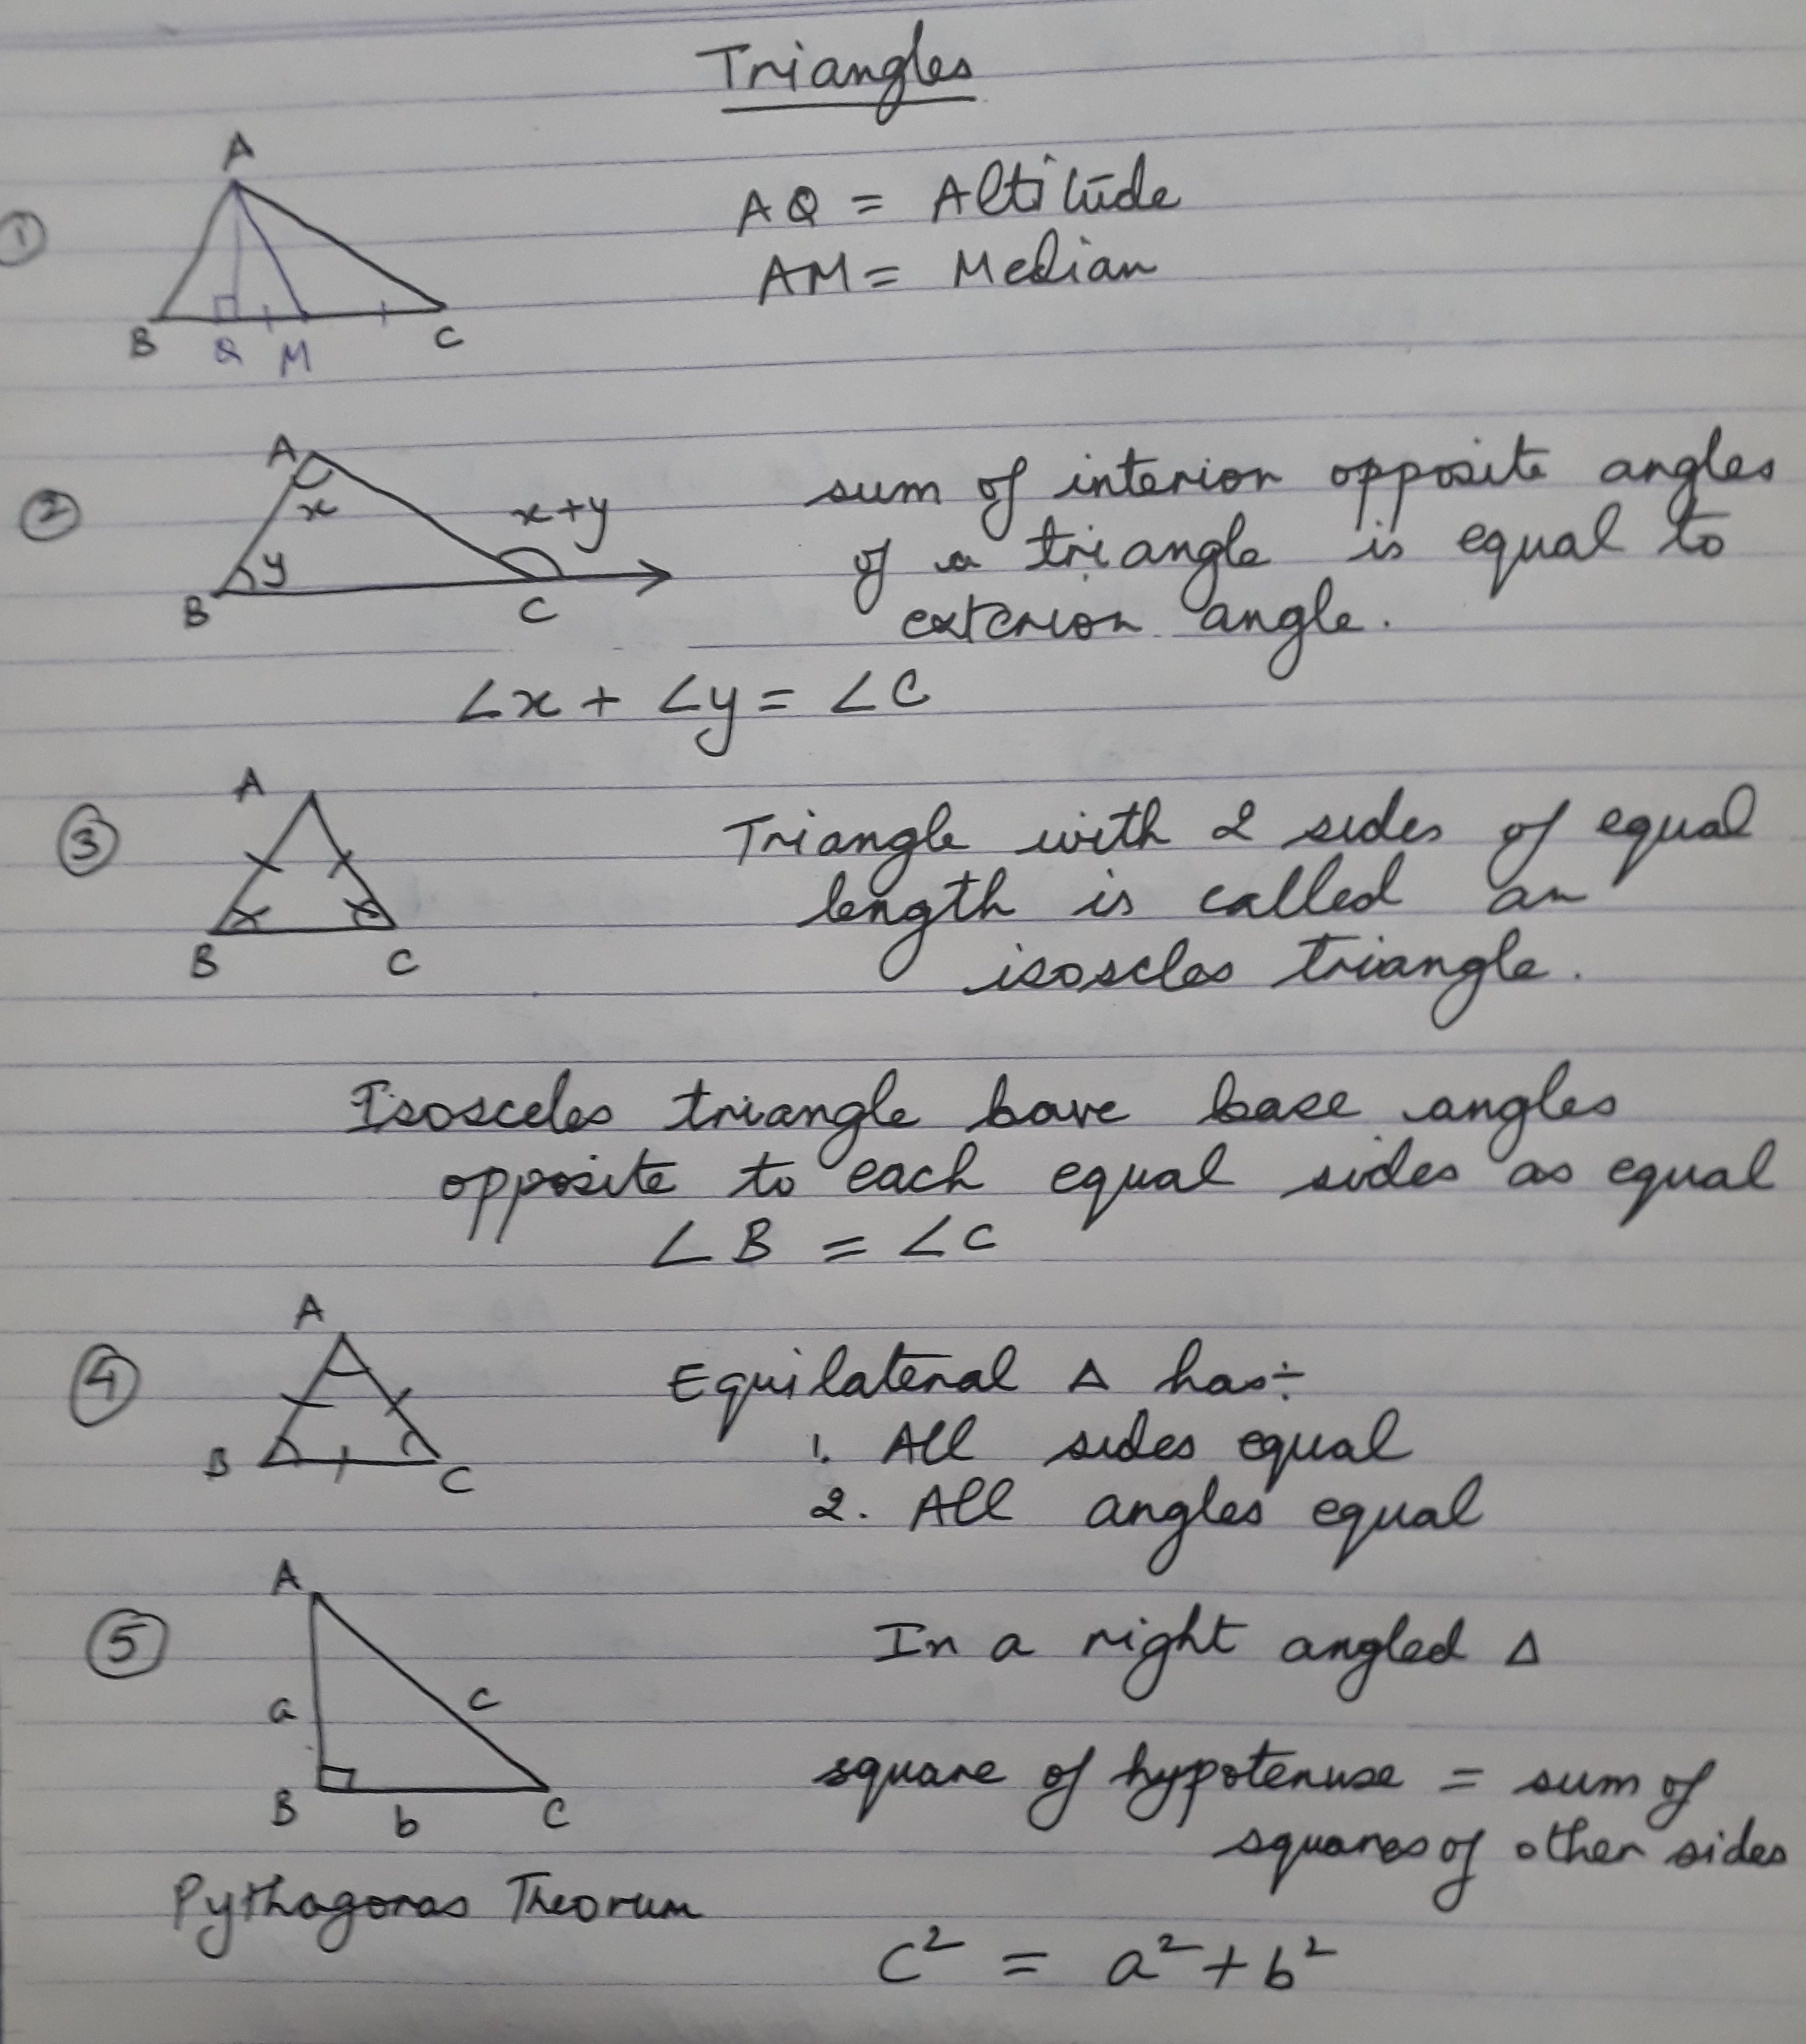 Triangles
①
A
B Q M C
AQ = Altitude
AM = Median
②
A
x
y
x+y
B C
sum of interior opposite angles
of a triangle is equal to
exterior angle.
∠x + ∠y = ∠C
③
A
x x
B C
Triangle with 2 sides of equal
length is called an
isoscles triangle.
Isosceles triangle have base angles
opposite to each equal sides as equal
∠B = ∠C
④
A
B C
Equilateral Δ has÷
1. All sides equal
2. All angles equal
⑤
A
a c
B b C
In a right angled Δ
square of hypotenuse = sum of
squares of other sides
Pythagoras Theorum
c² = a² + b²